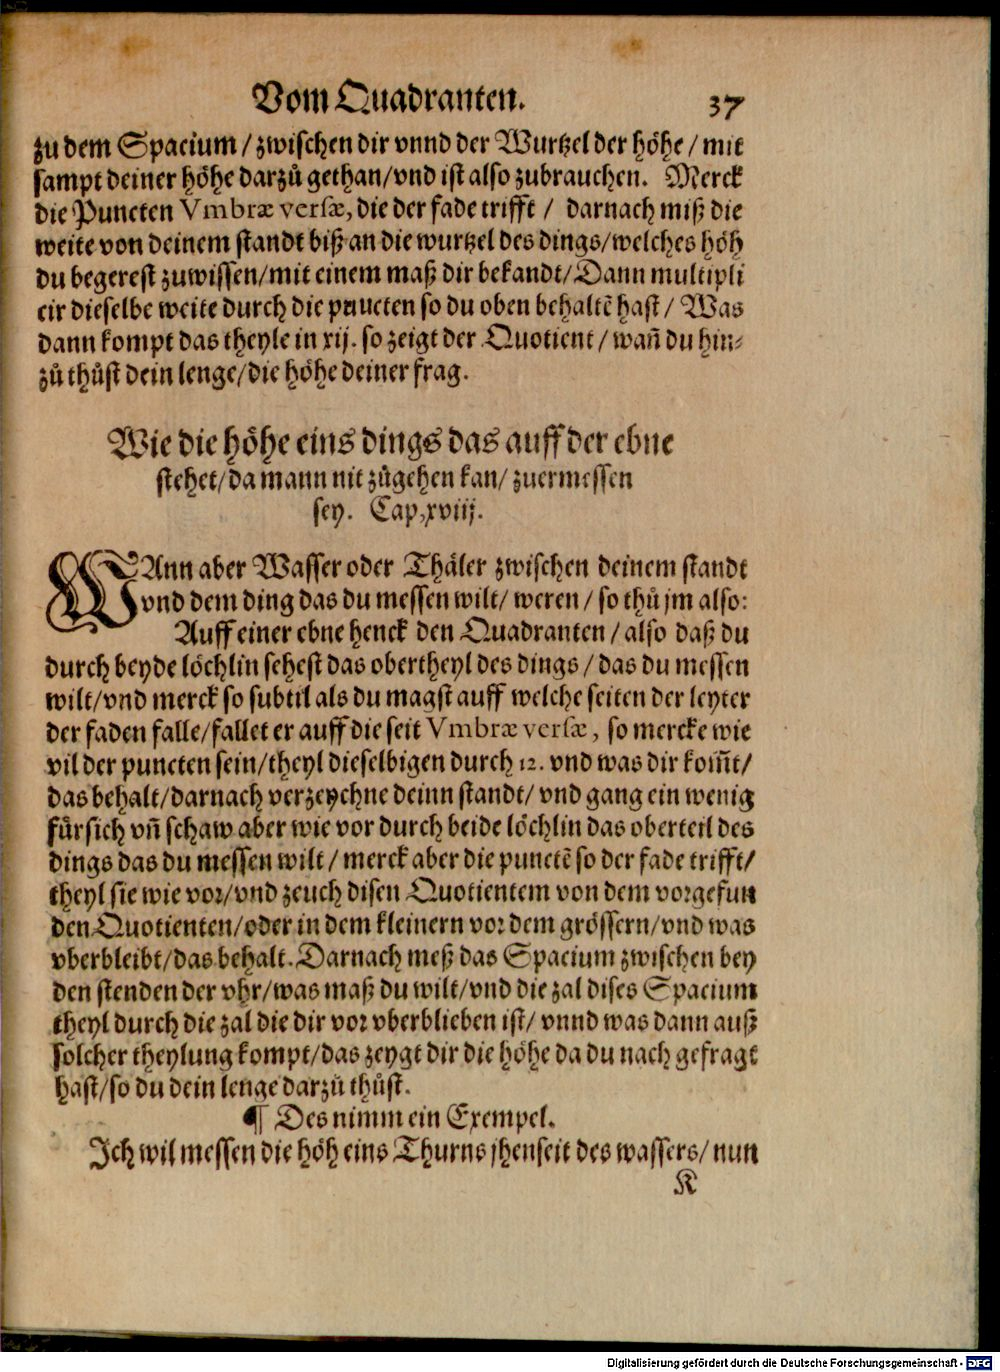 Vom Quadranten. 37
zu dem Spacium / zwischen dir vnnd der Wurtzel der höhe / mit
sampt deiner höhe darzů gethan/vnd ist also zubrauchen. Merck
die Puncten Vmbræ versæ, die der fade trifft / darnach miß die
weite von deinem standt biß an die wurtzel des dings/welches höh
du begerest zuwissen/mit einem maß dir bekandt/Dann multipli
cir dieselbe weite durch die pnucten so du oben behaltē hast / Was
dann kompt das theyle in xij. so zeigt der Quotient / wañ du hin-
zů thůst dein lenge/die höhe deiner frag.
Wie die höhe eins dings das auff der ebne
stehet/da mann nit zůgehen kan/ zuermessen
sey. Cap,xviij.
WAnn aber Wasser oder Thäler zwischen deinem standt
vnd dem ding das du messen wilt/ weren / so thů jm also:
Auff einer ebne henck den Quadranten / also daß du
durch beyde löchlin sehest das obertheyl des dings / das du messen
wilt/vnd merck so subtil als du magst auff welche seiten der leyter
der faden falle/fallet er auff die seit Vmbræ versæ, so mercke wie
vil der puncten sein/theyl dieselbigen durch 12. vnd was dir kom̃t/
das behalt/darnach verzeychne deinn standt/ vnd gang ein wenig
fürsich vñ schaw aber wie vor durch beide löchlin das oberteil des
dings das du messen wilt / merck aber die punctē so der fade trifft/
theyl sie wie vor/vnd zeuch disen Quotientem von dem vorgefun
den Quotienten/oder in dem kleinern vor dem grössern/vnd was
vberbleibt/das behalt. Darnach meß das Spacium zwischen bey
den stenden der vhr/was maß du wilt/vnd die zal dises Spacium
theyl durch die zal die dir vor vberblieben ist/ vnnd was dann auß
solcher theylung kompt/das zeygt dir die höhe da du nach gefragt
hast/so du dein lenge darzů thůst.
¶ Des nimm ein Exempel.
Ich wil messen die höh eins Thurns jhenseit des wassers/ nun
K
Digitalisierung gefördert durch die Deutsche Forschungsgemeinschaft - DFG